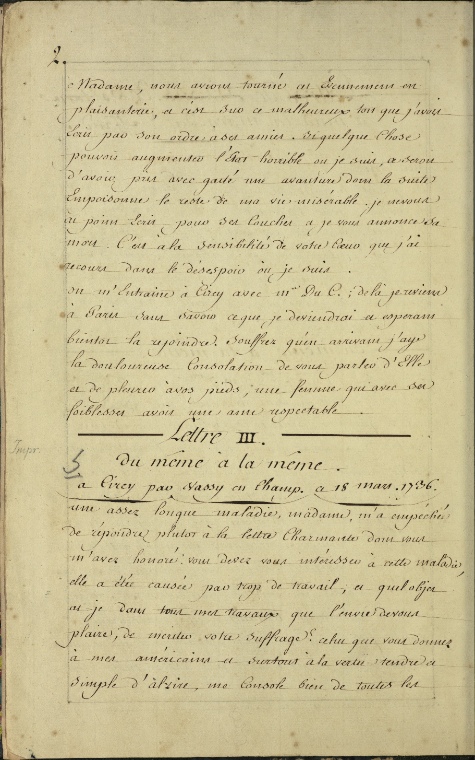 2.
Madame, nous avions tourné cet Evennement en
plaisanterie, et c'est sur ce malheureux ton que j'avois
Ecrit par son ordre à ses amies. si quelque Chose
pouvoit augmenter l'état horrible ou je suis, ce seroit
d'avoir pris avec gaité une avanture dont la suite
Empoisonne le reste de ma vie misérable. je ne vous
ai point Ecrit pour ses Couches et je vous annonce sa
mort. C'est à la sensibilité de votre Cœur que j'ai
recours dans le désespoir ou je suis.
on m'Entraine à Cirey avec mr. Du C.; de là je reviens
à Paris sans savoir ce que je deviendrai et esperant
bientot la rejoindre. Souffrez qu'en arrivant j'aye
la douloureuse Consolation de vous parler d'Elle
et de pleurer à vos pieds, une femme qui avec ses
foiblesses avoit une ame respectable.
Lettre III.
Impr.
Du même à la même.
a Cirey par Vassy en Champ. ce 18 mars. 1736.
une assez longue maladie, madame, m'a empéché
de répondre plutot à la lettre Charmante dont vous
m'avez honoré: vous devez vous intéresser à cette maladie,
elle a étée causée par trop de travail, et quel objet
ai je dans tous mes travaux que l'envie de vous
plaire, de meriter votre suffrage? celui que vous donnez
à mes américains et surtout à la vertu tendre et
simple d'alzire, me Console bien de toutes les